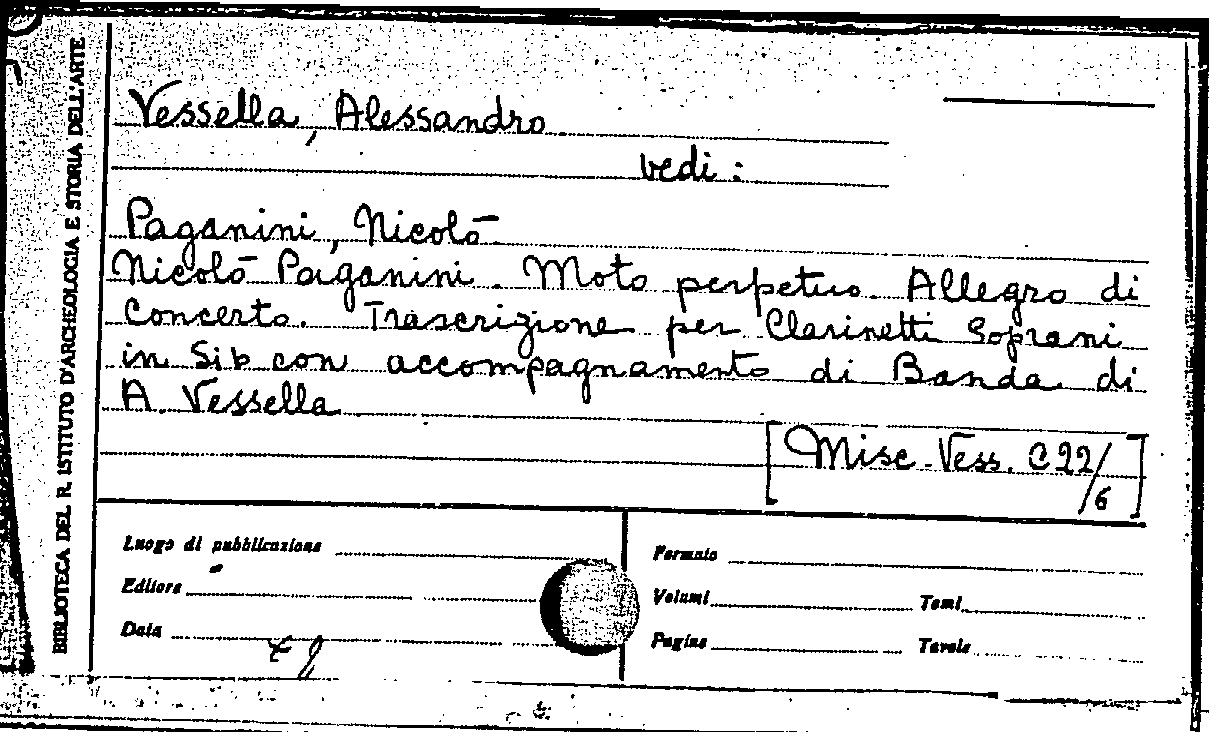 BIBLIOTECA DEL R. ISTITUTO D'ARCHEOLOGIA E STORIA DELL'ARTE
Vessella, Alessandro
vedi :
Paganini, Nicolò
Nicolò Paganini. Moto perpetuo. Allegro di
Concerto. Trascrizione per Clarinetti Soprani
in Sib con accompagnamento di Banda di
A. Vessella
[Misc. Vess. C 22/6]
Luogo di pubblicazione
Editore
Data
Formato
Volumi Tomi
Pagine Tavole